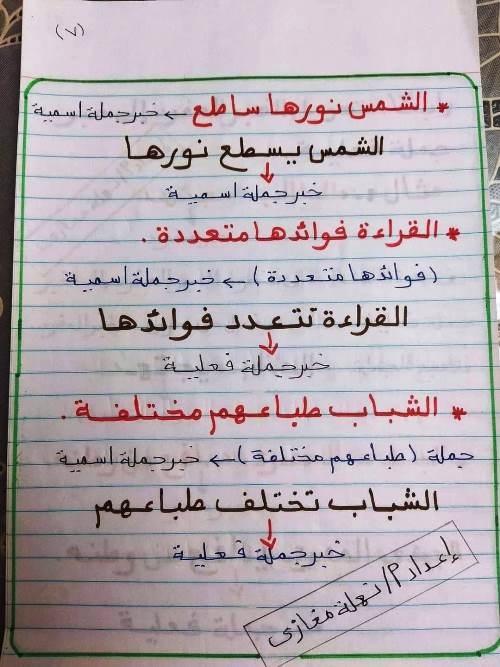 (٧)
* الشمس نورها ساطع ← خبر جملة اسمية
الشمس يسطع نورها
↓
خبر جملة اسمية
* القراءة فوائدها متعددة .
(فوائدها متعددة) ← خبر جملة اسمية
القراءة تتعدد فوائدها
↓
خبر جملة فعلية
* الشباب طباعهم مختلفة .
جملة (طباعهم مختلفة) ← خبر جملة اسمية
الشباب تختلف طباعهم
↓
خبر جملة فعلية
إعداد م/ نهلة مغازى